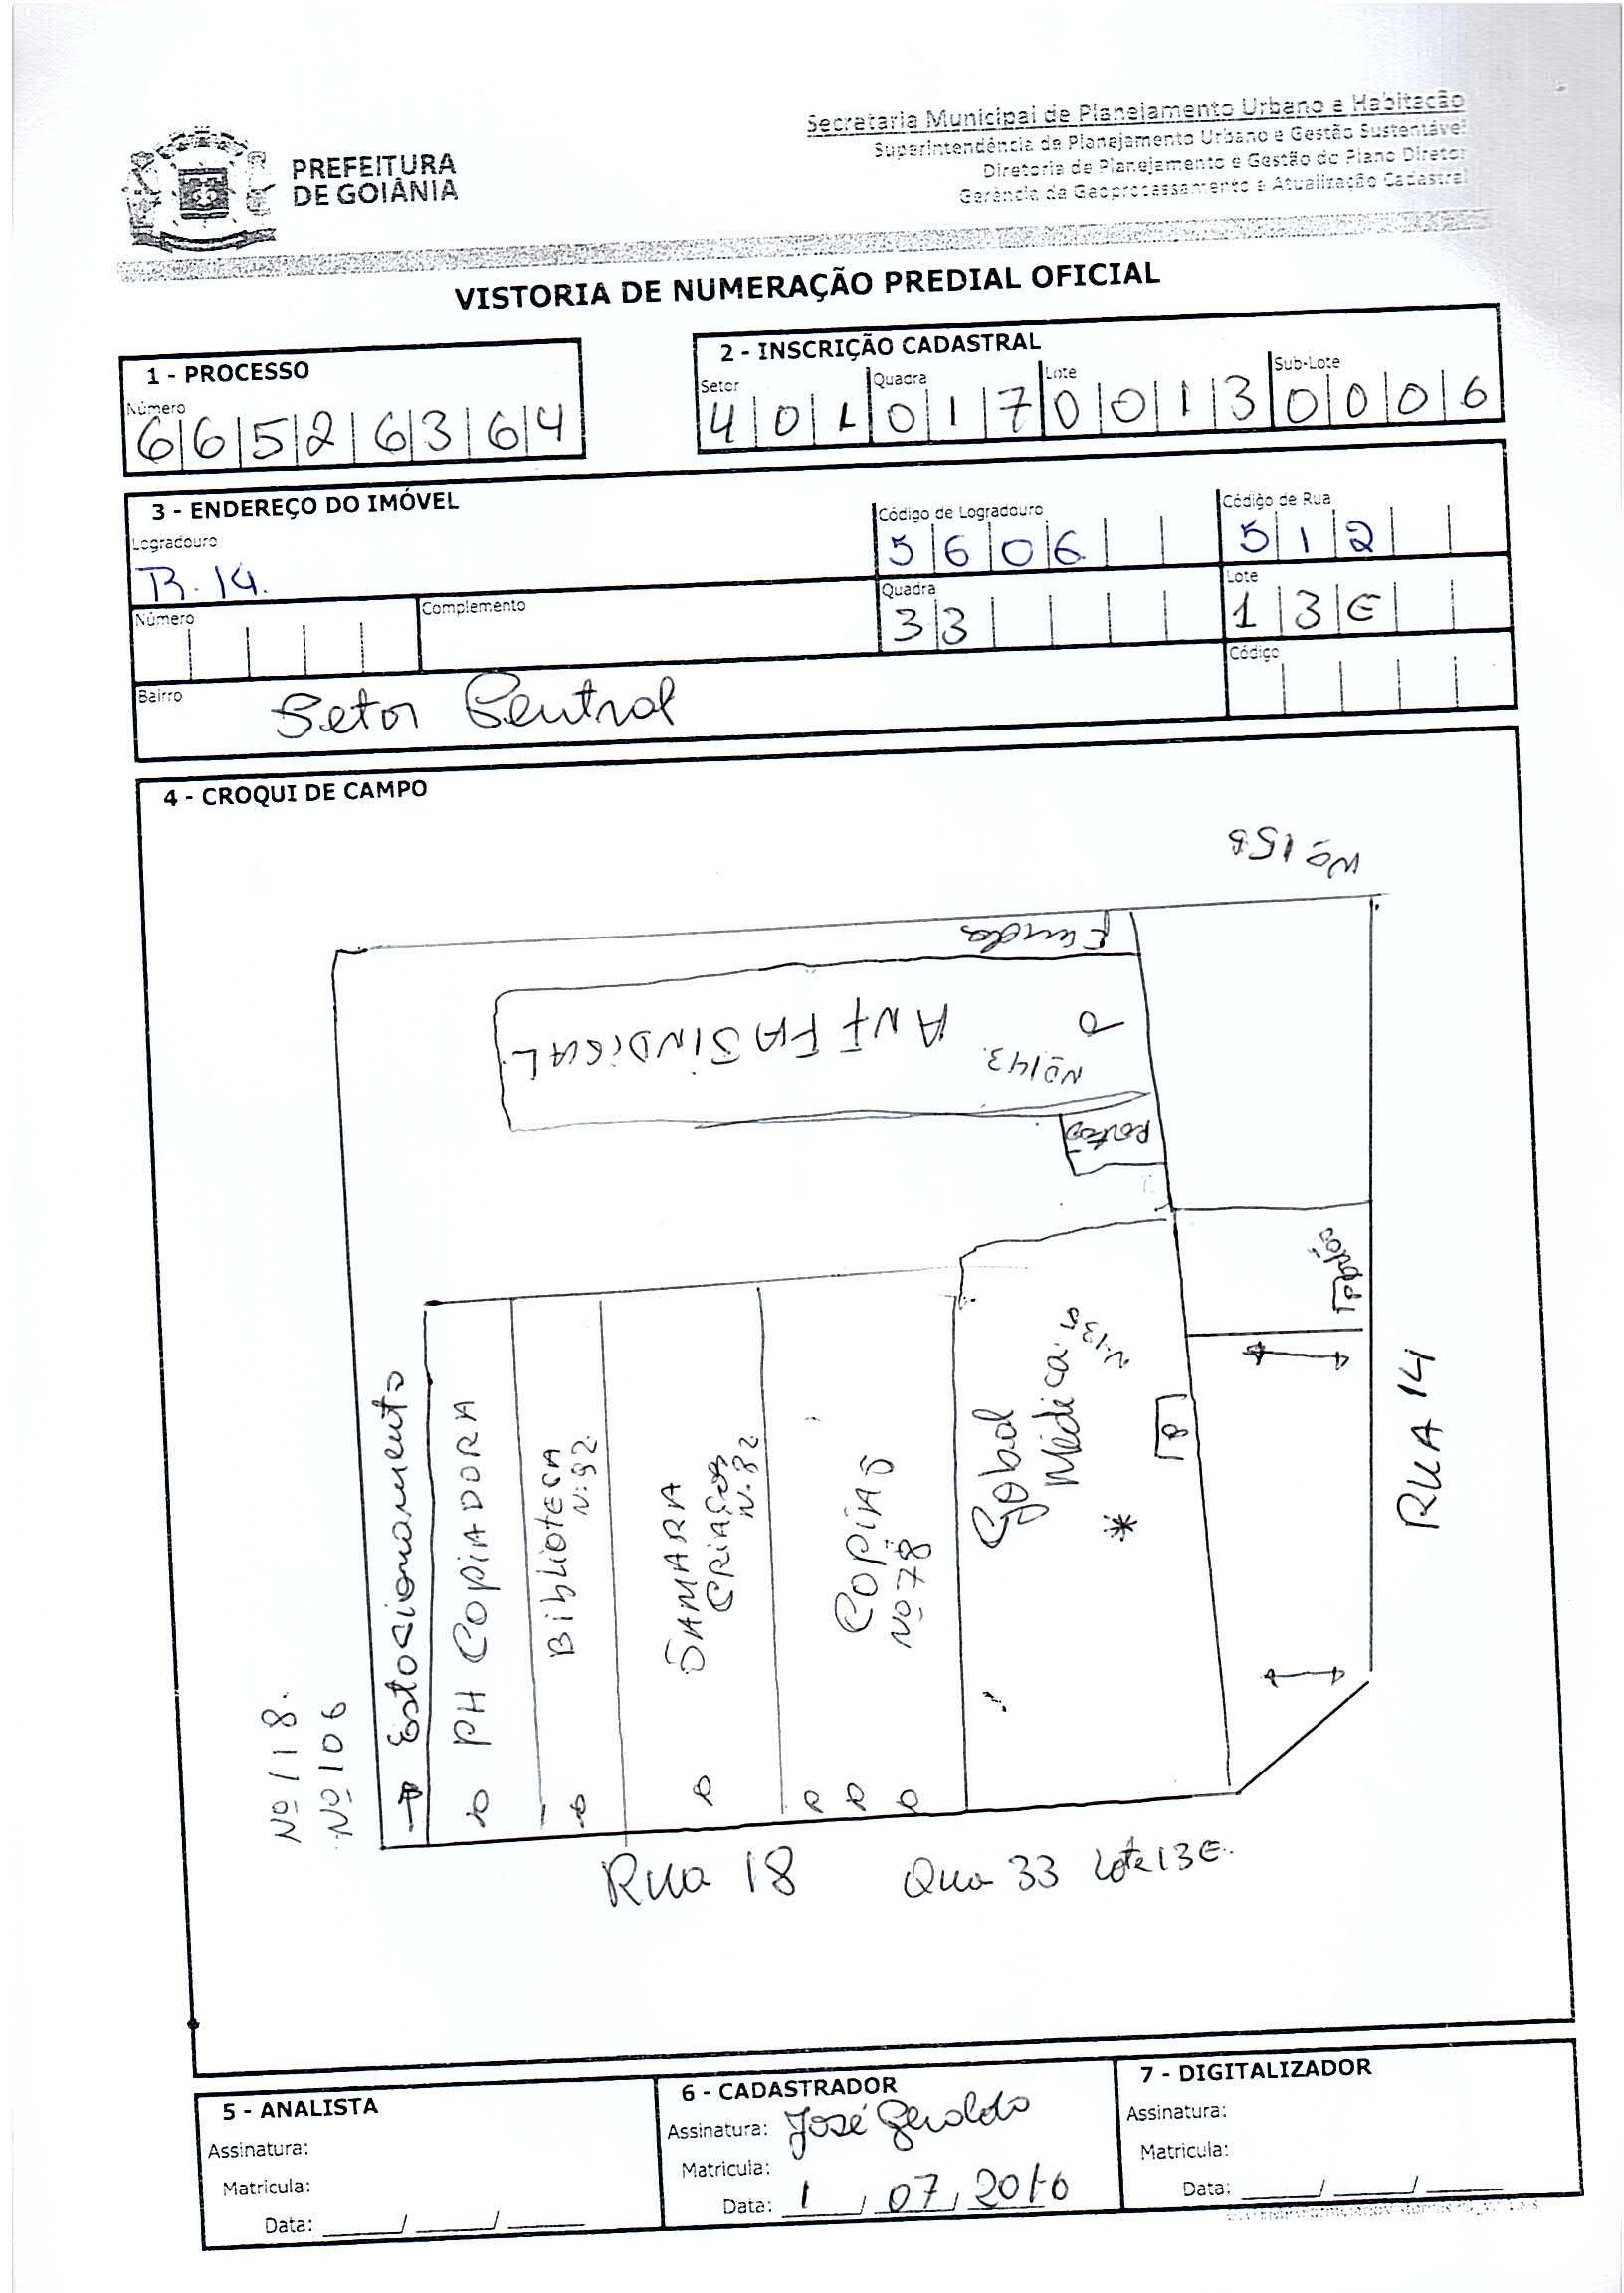 PREFEITURA
DE GOIÂNIA
Secretaria Municipal de Planejamento Urbano e Habitação
Superintendência de Planejamento Urbano e Gestão Sustentável
Diretoria de Planejamento e Gestão do Plano Diretor
Gerência de Geoprocessamento e Atualização Cadastral
VISTORIA DE NUMERAÇÃO PREDIAL OFICIAL
1 - PROCESSO
Número
6 6 5 2 6 3 6 4
2 - INSCRIÇÃO CADASTRAL
Setor Quadra Lote Sub-Lote
4 0 1 0 1 7 0 0 1 3 0 0 0 6
3 - ENDEREÇO DO IMÓVEL
Logradouro
R. 14.
Código de Logradouro
5 6 0 6
Código de Rua
5 1 2
Número
Complemento
Quadra
3 3
Lote
1 3 E
Bairro
Setor Central
Código
4 - CROQUI DE CAMPO
Nº 155
Fundos
ANFFA SINDICAL
Nº 143.
Portão
Portão
Estacionamento
PH COPIADORA
BibliotECA
N: 92
SAMARA
CRIAÇÕES
N. 82
COPIAS
Nº 78
Global
Médica
N. 139
P
*
RUA 14
Nº 118.
Nº 106
Rua 18 Qua 33 Lote 13E.
5 - ANALISTA
Assinatura:
Matricula:
Data: ____/____/____
6 - CADASTRADOR
Assinatura: José Geraldo
Matricula:
Data: 1 / 07 / 2016
7 - DIGITALIZADOR
Assinatura:
Matricula:
Data: ____/____/____